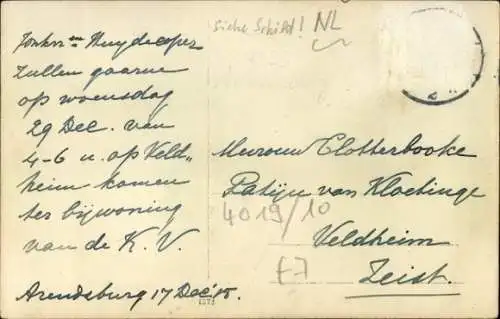 siehe Schild! NL
Jonkvr en Huydecoper
zullen gaarne
op woensdag
29 Dec. van
4-6 u. op Veld-
heim komen
ter bijwoning
van de K. V.
Arendsburg 17 Dec '15.
Mevrouw Clotterbooke
Patijn van Kloetinge
4019/10
Veldheim
E7
Zeist.